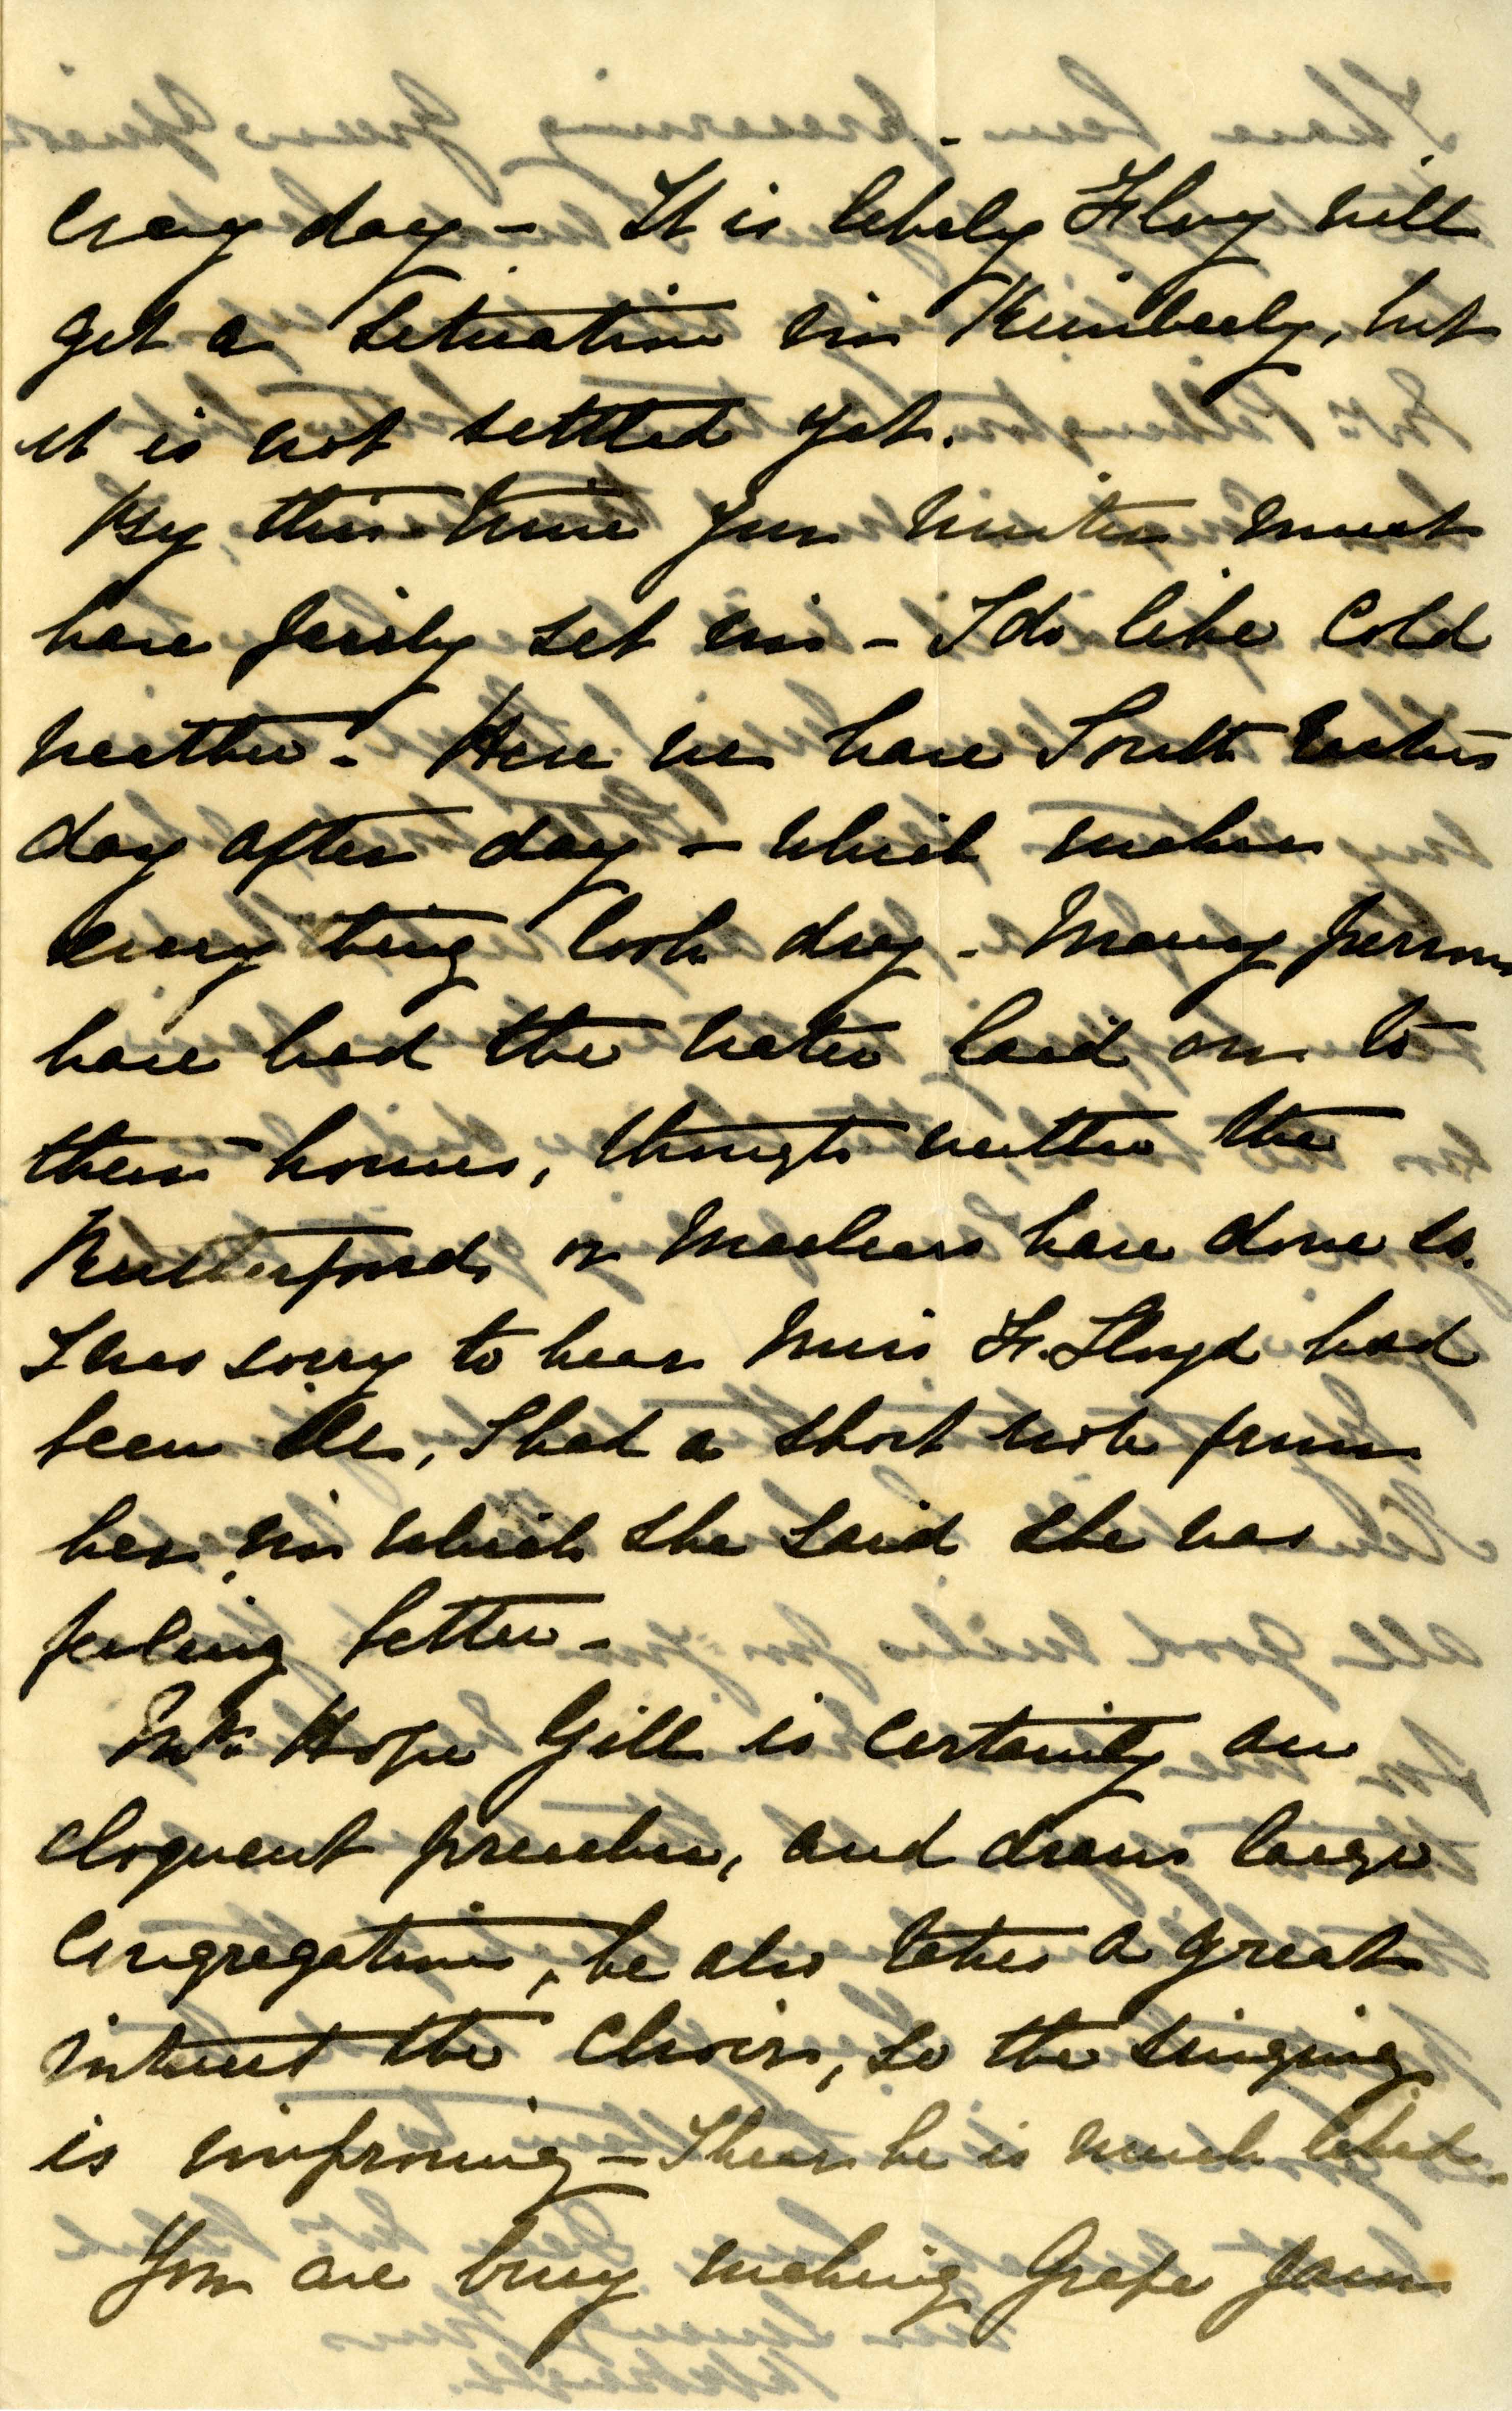 day - It is likely Floy will
get a situation in Kimberly, but
it is not settled yet.
By this time your winter must
have fairly set in - I do like Cold
weather. Here we have South Easters
day after day - which makes
every thing look dry - Many persons
have had the water laid on to
their houses, though neither the
Rutherfoords or Maclears have done so.
I was sorry to hear Miss F. Lloyd had
been ill, I had a short note from
her, in which she said she was
feeling better -
Mr. Hope Gill is certainly an
eloquent preacher, and draws large
Congregations, he also takes a great
interest the Choir, so the singing
is improving - I hear he is much liked.
You are busy making Grape Jam